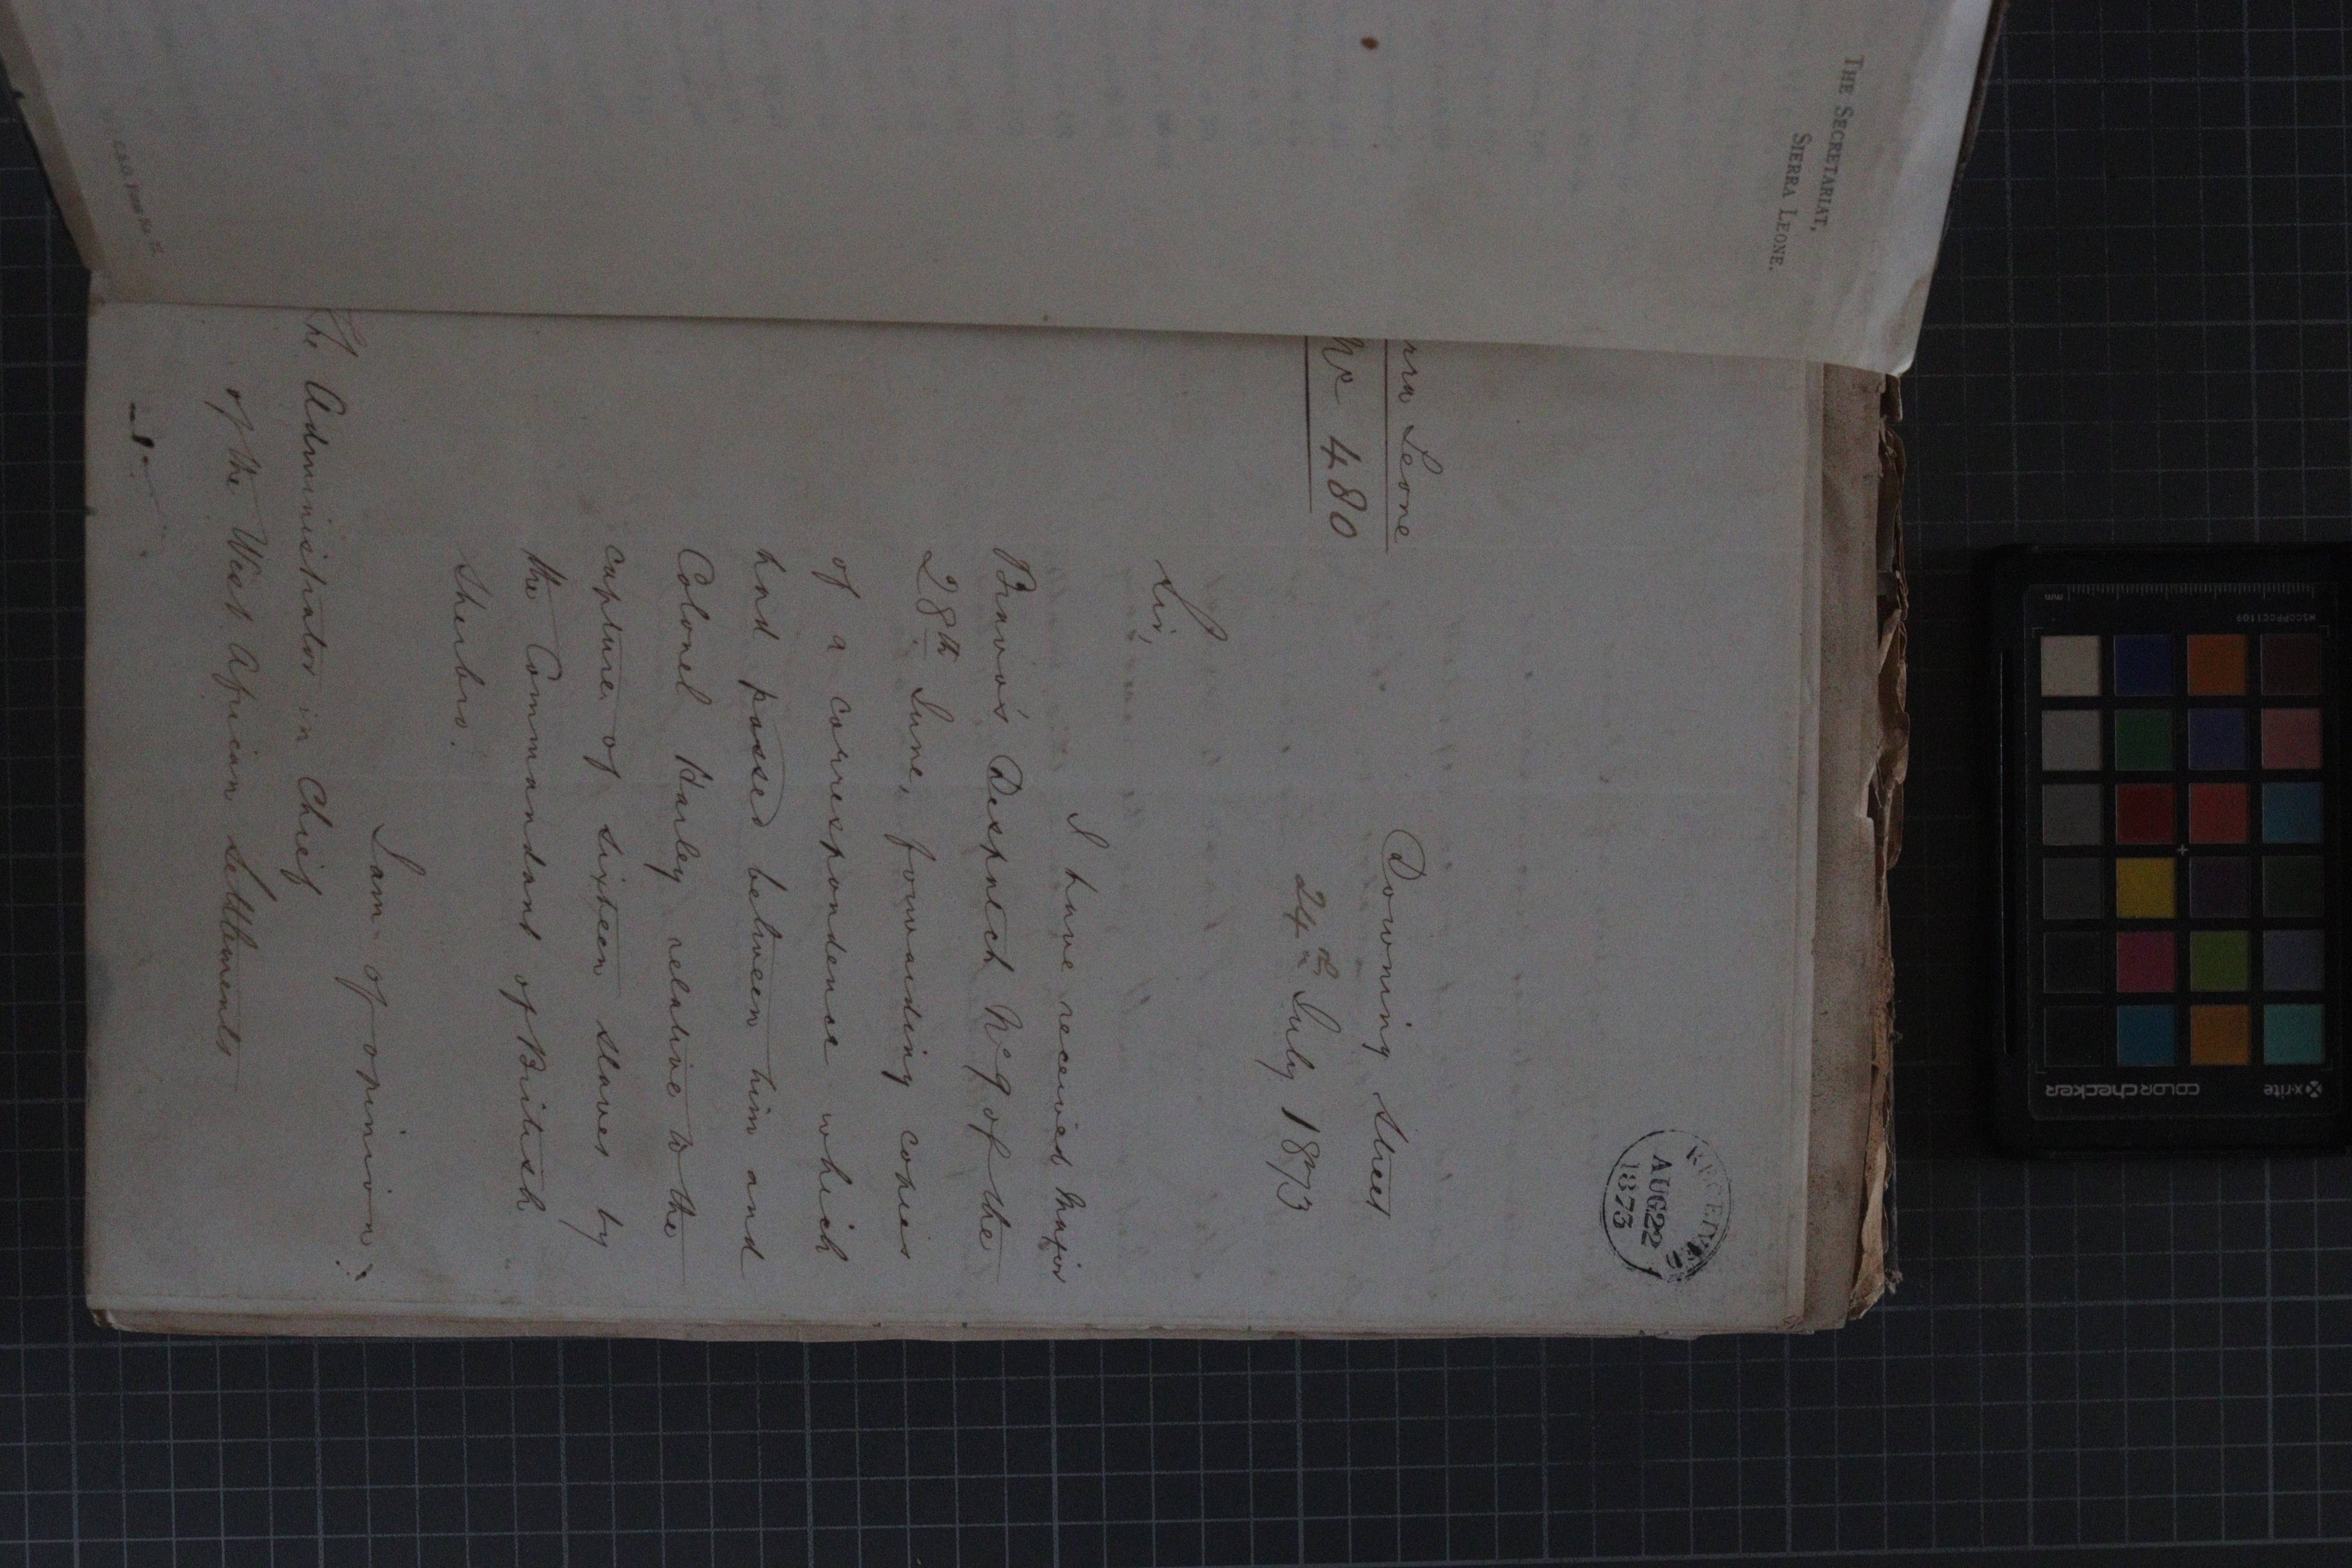 THE SECRETARIAT,
SIERRA LEONE.
RECEIVED
AUG 22
1873
rra Leone
No 480
Downing Street
24th July 1873
Sir,
I have received Major
Bravo's Despatch No 9 of the
28th June, forwarding copies
of a correspondence which
had passed between him and
Colonel Harley relative to the
capture of sixteen slaves by
the Commandant of British
Sherbro.
I am of opinion
he Administrator in Chief
of the West African Settlements
x-rite
colorchecker
MSCCPPCC1109
mm